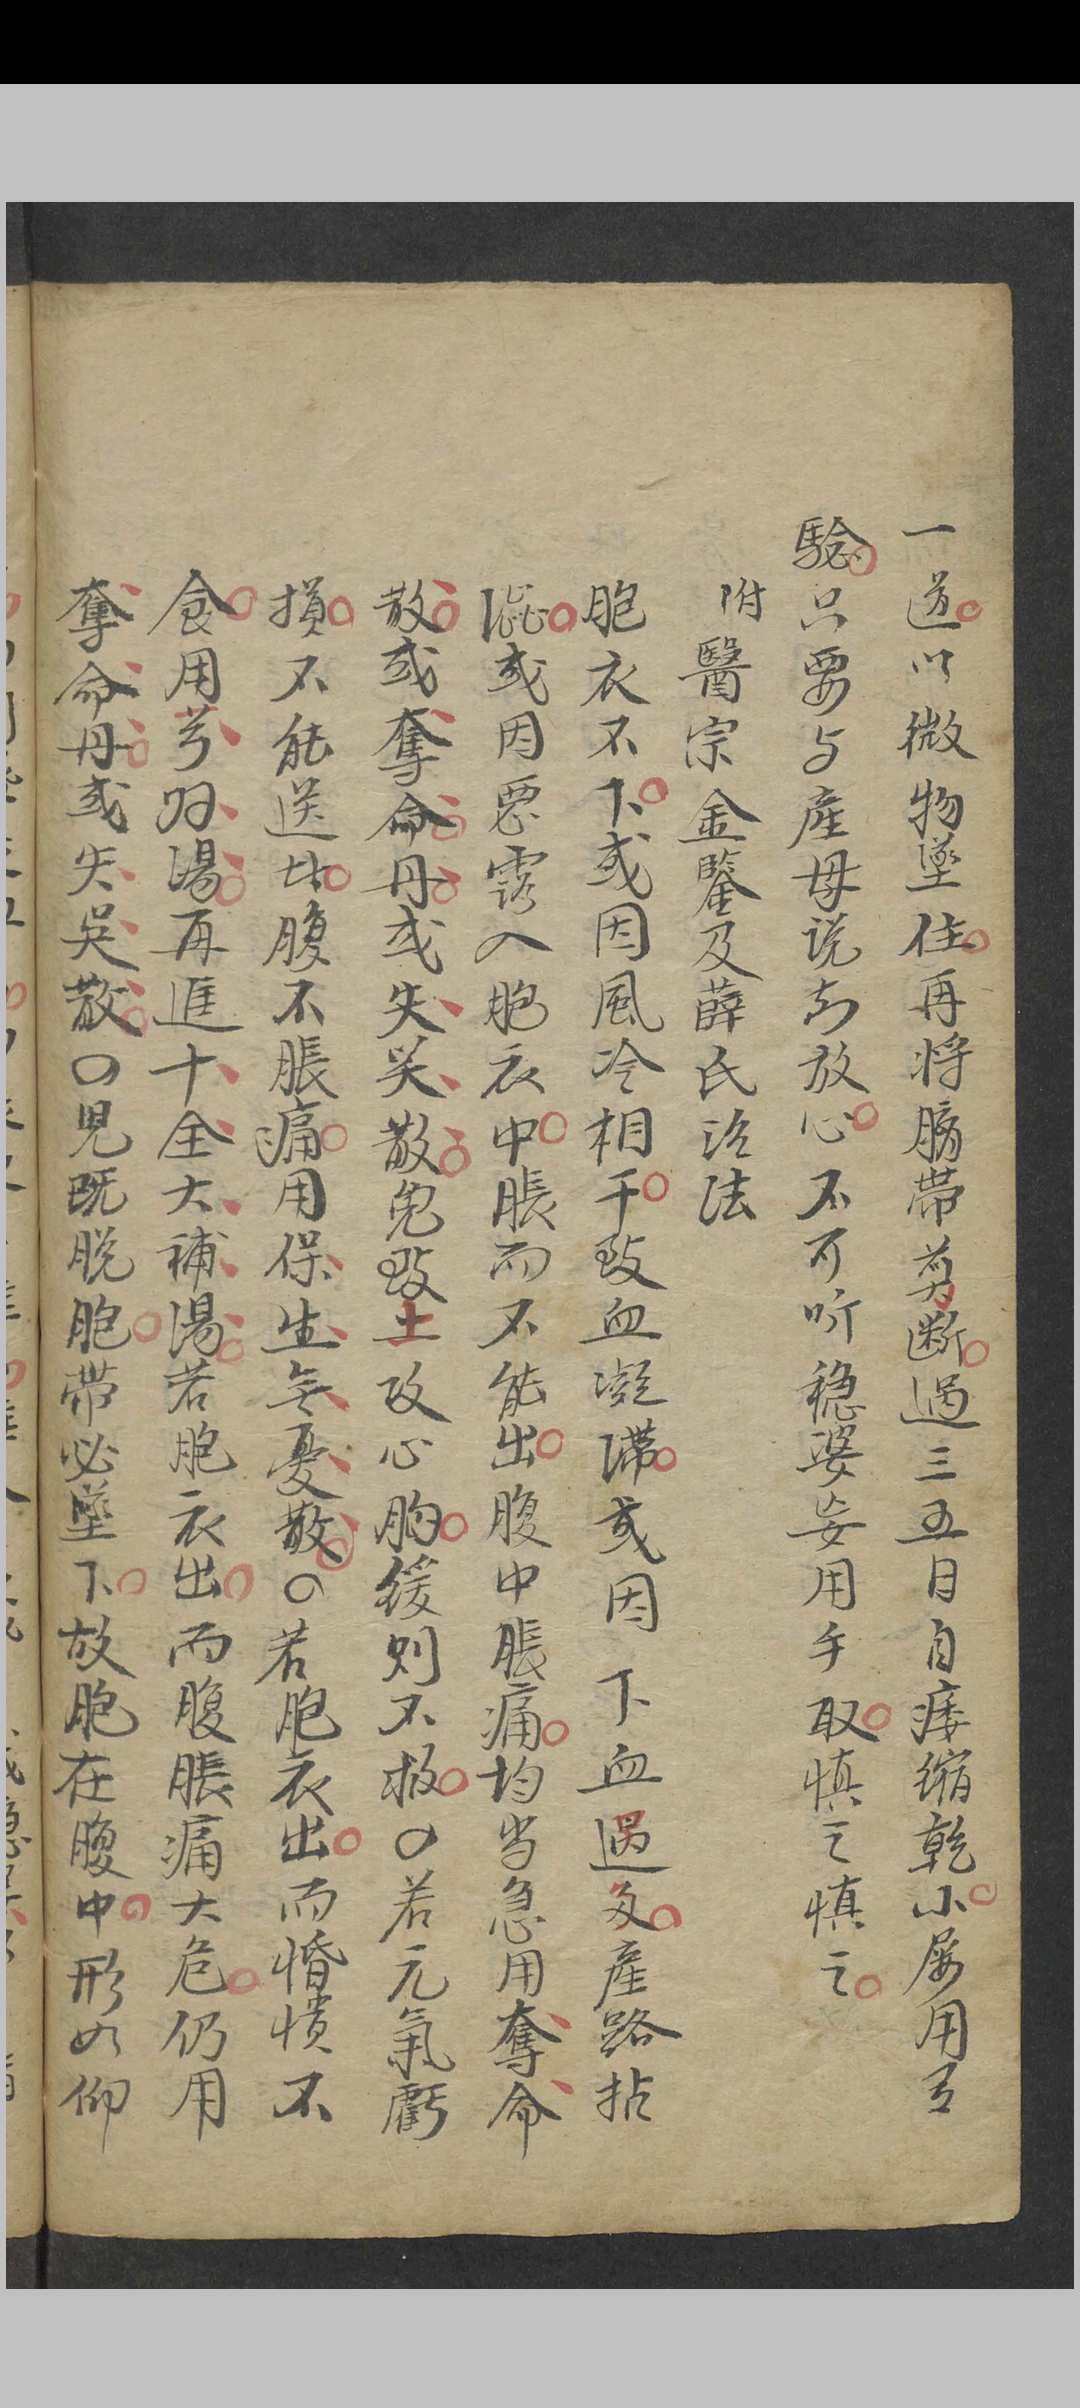 一道以微物墜住再将臍带剪断過三五日自痿缩乾小屡用有
驗只要与產母说知放心不可听稳婆妄用手取慎之慎之
附醫宗金鑒及薛氏治法
胞衣不下或因風冷相干致血凝滯或因下血過多產路拈
澁或因惡露入胞衣中脹而不能出腹中脹痛均当急用奪命
散或奪命丹或失笑散免致上攻心胸缓则不救〇若元氣虧
損不能送出腹不脹痛用保生無憂散〇若胞衣出而惛愦不
食用芎归湯再進十全大補湯若胞衣出而腹脹痛大危仍用
奪命丹或失笑散〇児既脱胞带必墜下放胞在腹中形如仰